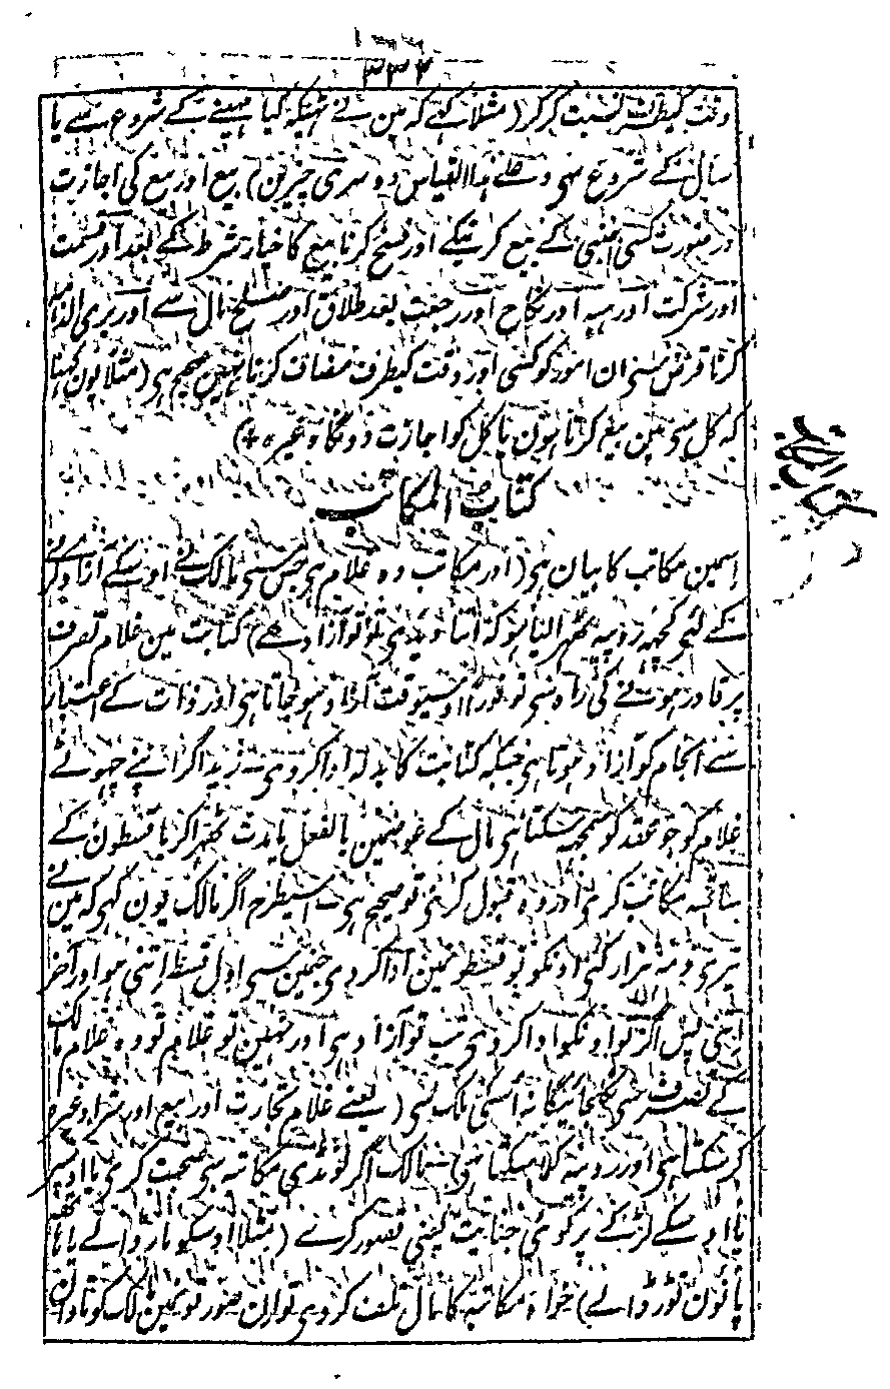 ۳۳۲
وقت کیطرف نسبت کر کر (مثلاً کہے کہ مین نے ٹھیکہ کیا مہینے کے شروع سے یا
سال کے شروع سی وعلے ہذا القیاس دوسری چیزین) بیع اور بیع کی اجازت
درصورت کسی اجنبی کے بیع کرنیکے اور فسخ کرنا بیع کا خیار شرط کے بعد اور قسمت
اور شرکت اور ہبہ اور نکاح اور رجعت بعد طلاق اور صلح مال سے اور بری الذمہ
کرنا قرض سی ان امور کو کسی اور وقت کیطرف مضاف کرنا نہین صحیح ہی (مثلا یون کہنا
کہ کل سی مین بیع کرتا ہون یا کل کو اجازت دونگا وغیرہ)
کتاب المکاتب
کتاب المکاتب
اسمین مکاتب کا بیان ہی (اور مکاتب وہ غلام ہی جس سی مالک نے اوسکے آزاد کرنے
کے لئی کچہہ روپیہ ٹھہرا لیا ہو کہ اتنا دیدی تو تو آزاد ہے) کتابت مین غلام تصرف
پر قادر ہونے کی راہ سی تو فورا اوسیوقت آزاد ہو جاتا ہی اور ذات کے اعتبار
سے انجام کو آزاد ہوتا ہی جبکہ کتابت کا بدلہ ادا کر دی زید اگر اپنے چہوٹے
غلام کو جو عقد کو سمجہہ سکتا ہی مال کے عوضمین بالفعل یا مدت ٹھہرا کر یا قسطون کے
ساتہہ مکاتب کری اور وہ قبول کر لی تو صحیح ہی اسیطرح اگر مالک یون کہی کہ مین نے
تیری ذمہ ہزار کئی اونکو تو قسطونمین ادا کر دی جنمین سی اول قسط اتنی ہو اور آخر
اتنی پس اگر تو اونکو ادا کر دی تب تو آزاد ہی اور نہین تو غلام تو وہ غلام مالک
کے تصرف سی نکلجائیگا نہ اسکی ملک سی (یعنے غلام تجارت اور بیع اور شرا وغیرہ
کر سکتا ہی اور روپیہ کما سکتا ہی مالک اگر لونڈی مکاتبہ سی صحبت کری یا اوسپر
یا اوسکے لڑکے پر کوئی جنایت یعنی قصور کرے (مثلا اوسکو مار ڈالے یا ہاتہہ
پانون توڑ ڈالے) خواہ مکاتبہ کا مال تلف کر دی تو ان صورتونمین مالک کو تاوان